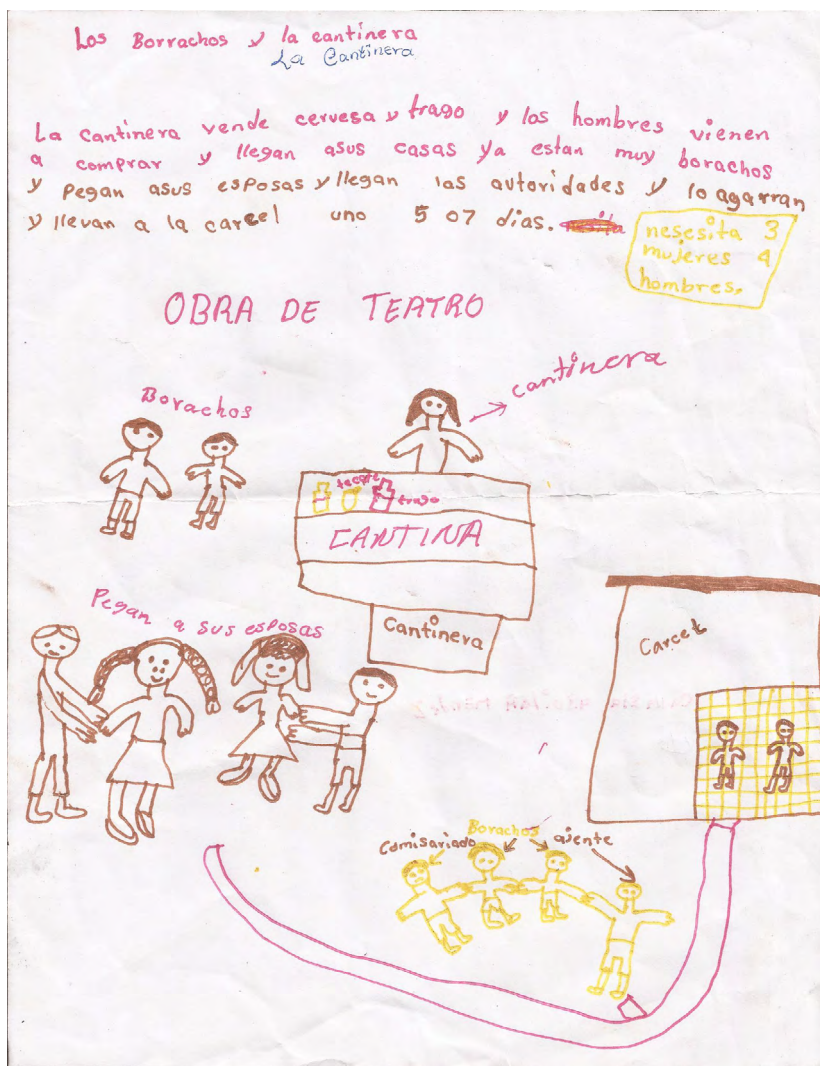 Los Borrachos y la cantinera
La Cantinera
La cantinera vende cervesa y trago y los hombres vienen
a comprar y llegan asus casas ya estan muy borachos
y Pegan asus esposas y llegan las autoridades y lo agarran
y llevan a la carcel uno 5 o7 dias.
nesesita 3
mujeres 4
hombres.
OBRA DE TEATRO
Borachos
cantinera
trago
CANTINA
Cantinera
Pegan a sus esposas
Carcel
Borachos
Comisariado
ajente